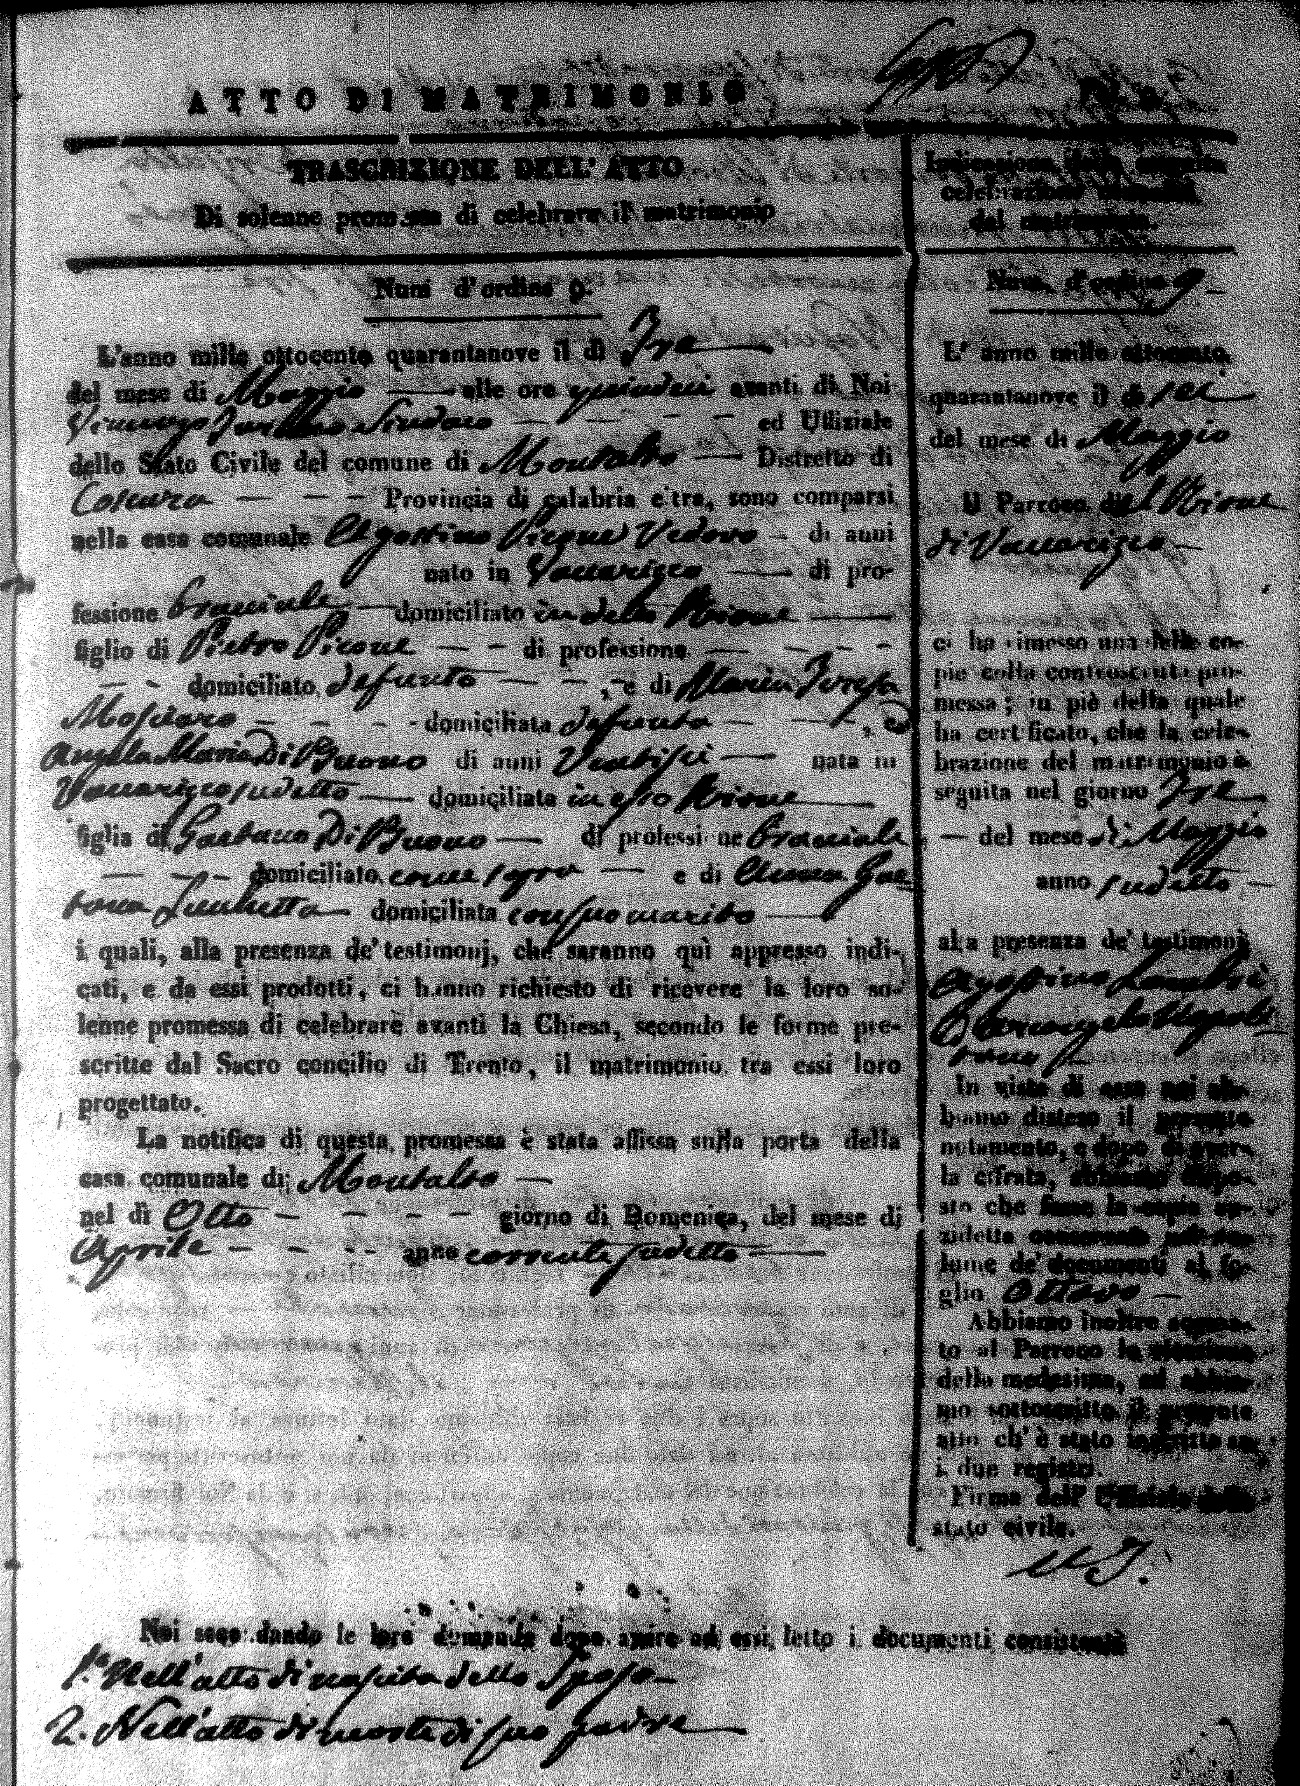 ATTO DI MATRIMONIO
TRASCRIZIONE DELL' ATTO
Di solenne promessa di celebrare il matrimonio
Num d'ordine 9.
L'anno mille ottocento quarantanove il dì Tre
del mese di Maggio — alle ore quindeci avanti di Noi
Vincenzo Sindaco — — — — ed Uffiziale
dello Stato Civile del comune di Montalto — Distretto di
Cosenza — — — Provincia di calabria citra, sono comparsi
nella casa comunale Agostino Picone Vedovo — di anni
nato in Vaccarizzo — di pro-
fessione bracciale — domiciliato in detto Rione —
figlio di Pietro Picone — — di professione — — — —
— — domiciliato defunto — — — , e di Maria Teresa
Mosciaro — — — — domiciliata defunta — — , ed
Angela Maria Di Buono di anni Ventisei — nata in
Vaccarizzo sudetto — domiciliata in esso Rione —
figlia di Gaetano Di Buono — di professione bracciale
— — — domiciliato come sopra — e di Anna Gae
tana domiciliata con suo marito —
i quali, alla presenza de' testimonj, che saranno quì appresso indi-
cati, e da essi prodotti, ci hanno richiesto di ricevere la loro so-
lenne promessa di celebrare avanti la Chiesa, secondo le forme pre-
scritte dal Sacro concilio di Trento, il matrimonio tra essi loro
progettato.
La notifica di questa promessa è stata affissa sulla porta della
casa comunale di Montalto —
nel dì Otto — — — — giorno di Domenica, del mese di
Aprile — — — — anno corrente sudetto —
Noi secondando le loro domande dopo avere ad essi letto i documenti consistenti
1.° Nell'atto di nascita dello Sposo —
2. Nell'atto di morte di suo padre —
Indicazione della seguita
celebrazione
del matrimonio.
Num. d'ordine 9 —
L' anno mille ottocento
quarantanove il dì sei
del mese di Maggio
Il Parroco del Rione
di Vaccarizzo —
ci ha rimesso una delle co-
pie della controscritta pro-
messa; in piè della quale
ha certificato, che la cele-
brazione del matrimonio è
seguita nel giorno Tre
— del mese di Maggio
anno sudetto —
alla presenza de' testimonj
Agostino
E
In vista di essa noi ab-
biamo disteso il presente
notamento, e dopo di aver-
la cifrata, abbiamo dispo-
sto che fusse la copia an-
zidetta conservata nel vo-
lume de' documenti al fo-
glio Ottavo —
Abbiamo inoltre accusa-
to al Parroco la ricezione
della medesima, ed abbia-
mo sottoscritto il presente
atto ch' è stato inscritto su
i due registri.
Firma dell' Uffiziale dello
stato civile.